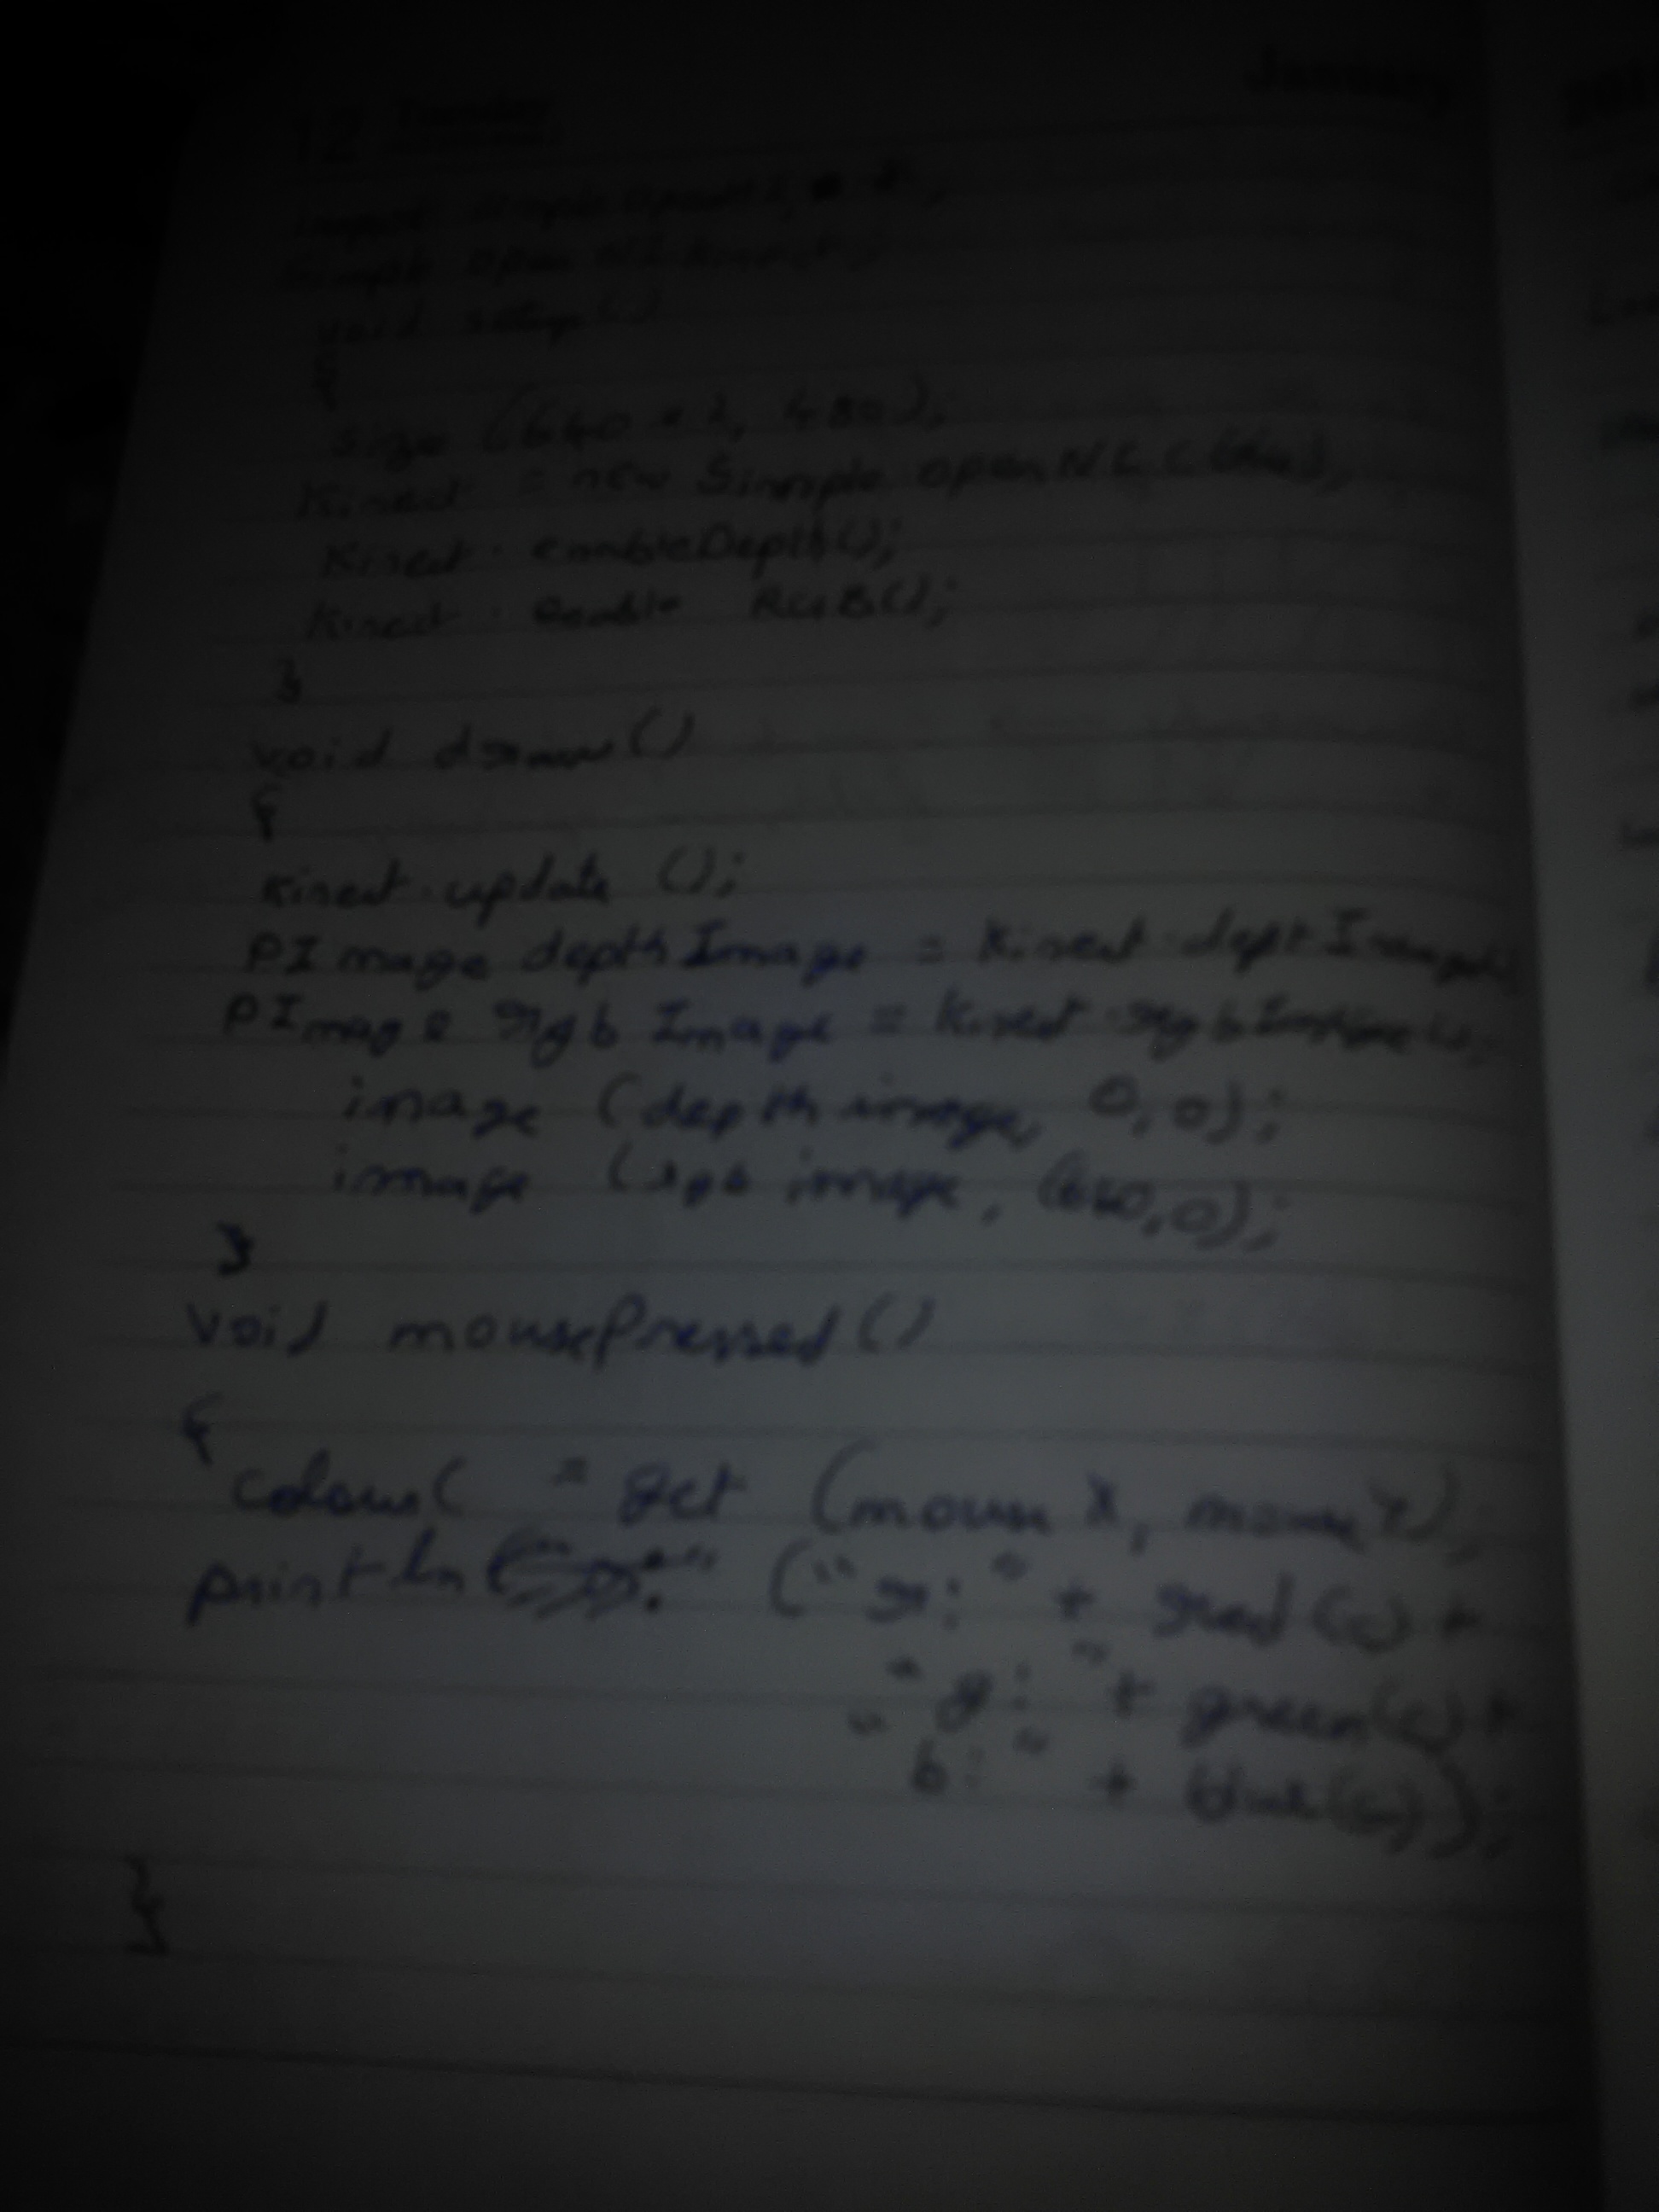 January
12 Tuesday
void setup()
{
size (640 * 2, 480);
Kinect = new Simple openNI (this);
Kinect . enableDepth();
Kinect . enable RGB();
}
void draw()
{
Kinect . update ();
PImage depthImage = Kinect . deptImage
PImage rgb Image = Kinect . rgbImage();
image (depth image, 0, 0);
image (rgb image, (640, 0);
}
void mousePressed()
{
colour( = get (mouse X, mouse Y)
println ("r: " + red (c) +
" g: " + green(c) +
" b: " + blue(c));
}